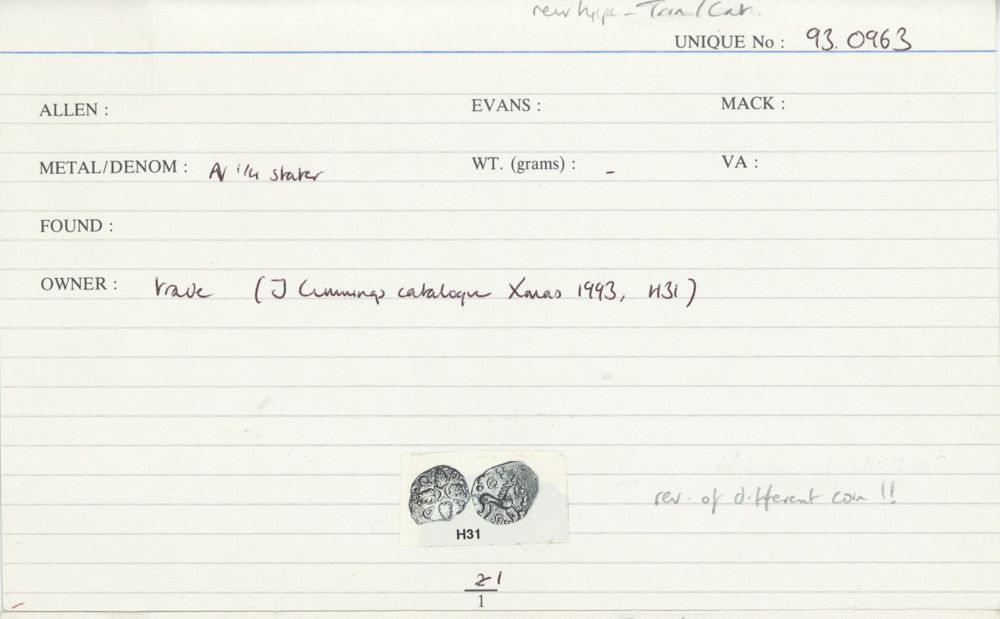 new type - Trin/Cat.
UNIQUE No : 93.0963
ALLEN : EVANS : MACK :
METAL/DENOM : AV 1/4 stater WT. (grams) : - VA :
FOUND :
OWNER : trade (J Cummings catalogue Xmas 1993, H31)
rev. of different coin !!
H31
1
1